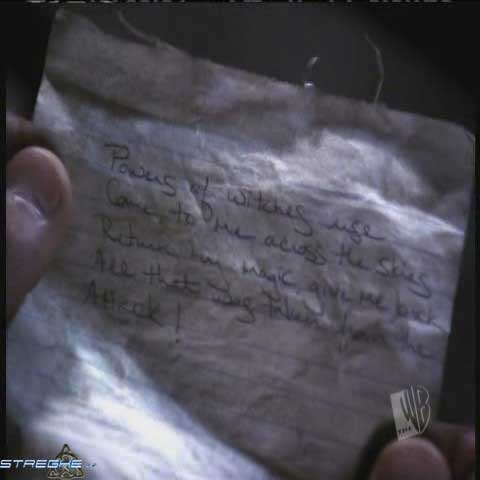 Powers of witches rise
Come to me across the skies
Return my magic give me back
All that was taken from the
Attack!
THE WB
STREGHE